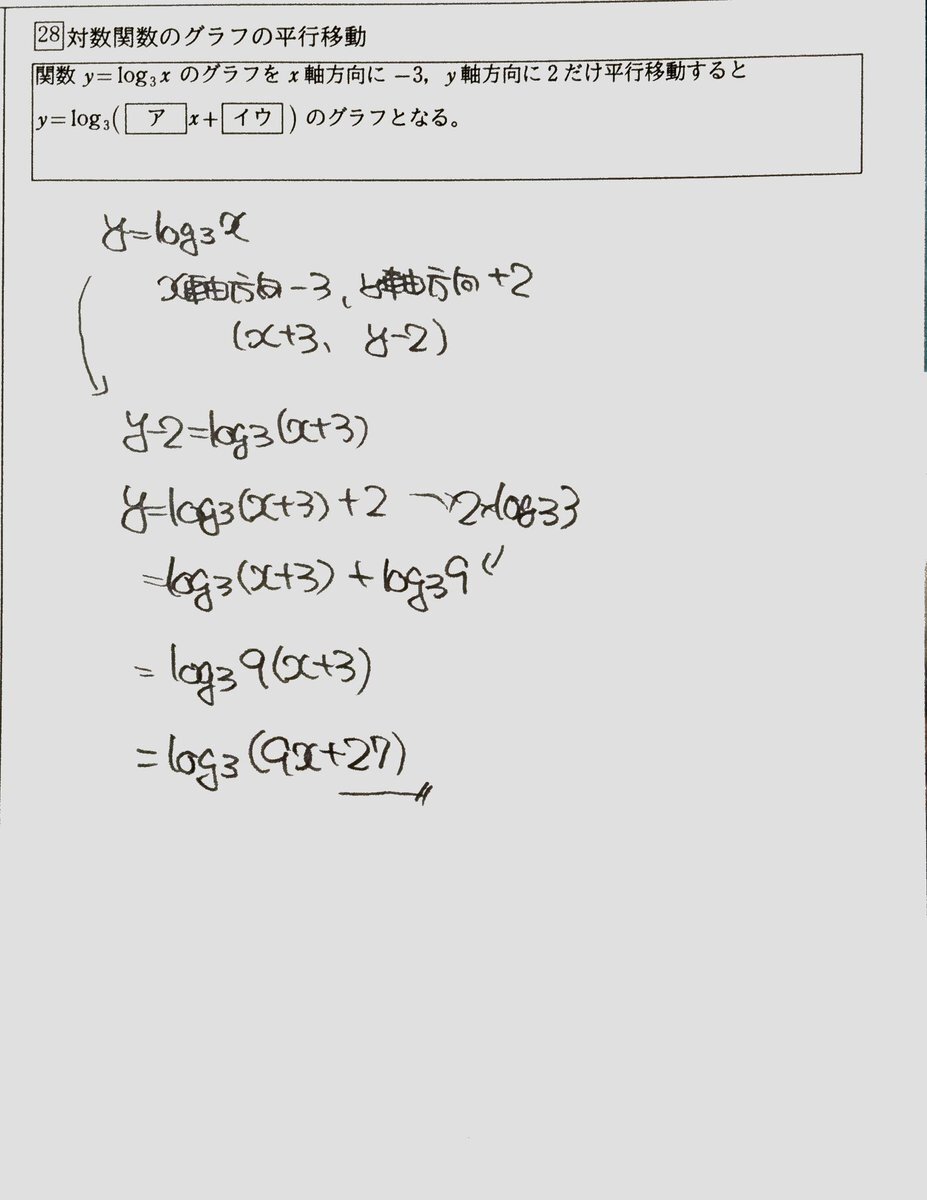 28 対数関数のグラフの平行移動
関数 y=log₃x のグラフを x 軸方向に −3, y 軸方向に 2 だけ平行移動すると
y=log₃( ア x+ イウ ) のグラフとなる。
y=log₃x
x軸方向−3、y軸方向+2
(x+3、y−2)
y−2=log₃(x+3)
y=log₃(x+3)+2 → 2×log₃3
=log₃(x+3)+log₃9
=log₃9(x+3)
=log₃(9x+27)